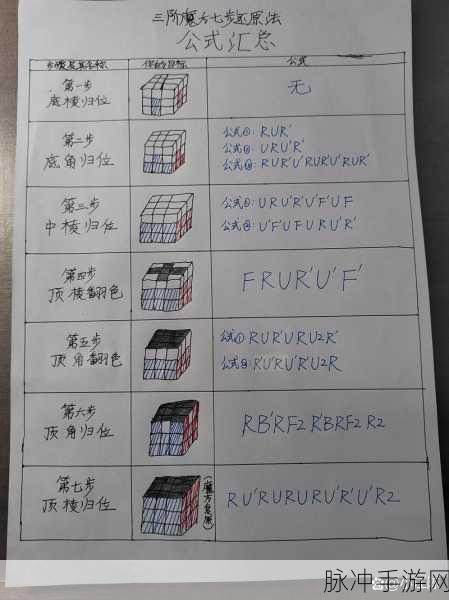 三阶魔方七步还原法
公式汇总
步骤及其名称 你的目标 公式
第一步
底棱归位
无
第二步
底角归位
公式①: RUR'
公式②: URU'R'
公式③: RUR'U'RUR'U'RUR'
第三步
中棱归位
公式①: URU'R'U'F'UF
公式②: U'F'UFURU'R'
第四步
顶棱翻色
FRUR'U'F'
第五步
顶角翻色
公式① RUR'URU2R'
公式② R'U'RU'R'U2R
第六步
顶角归位
RB'RF2R'BRF2R2
第七步
顶棱归位
(魔方复原)
RU'RURURU'R'U'R2
脉冲手游网